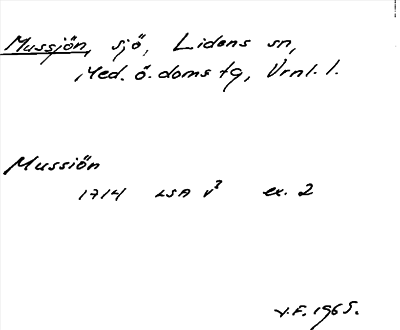 Mussjön, sjö, Lidens sn,
Med. ö. doms tg, Vrnl. l.
Mussiön
1714 LSA V² ex. 2
V.F. 1965.